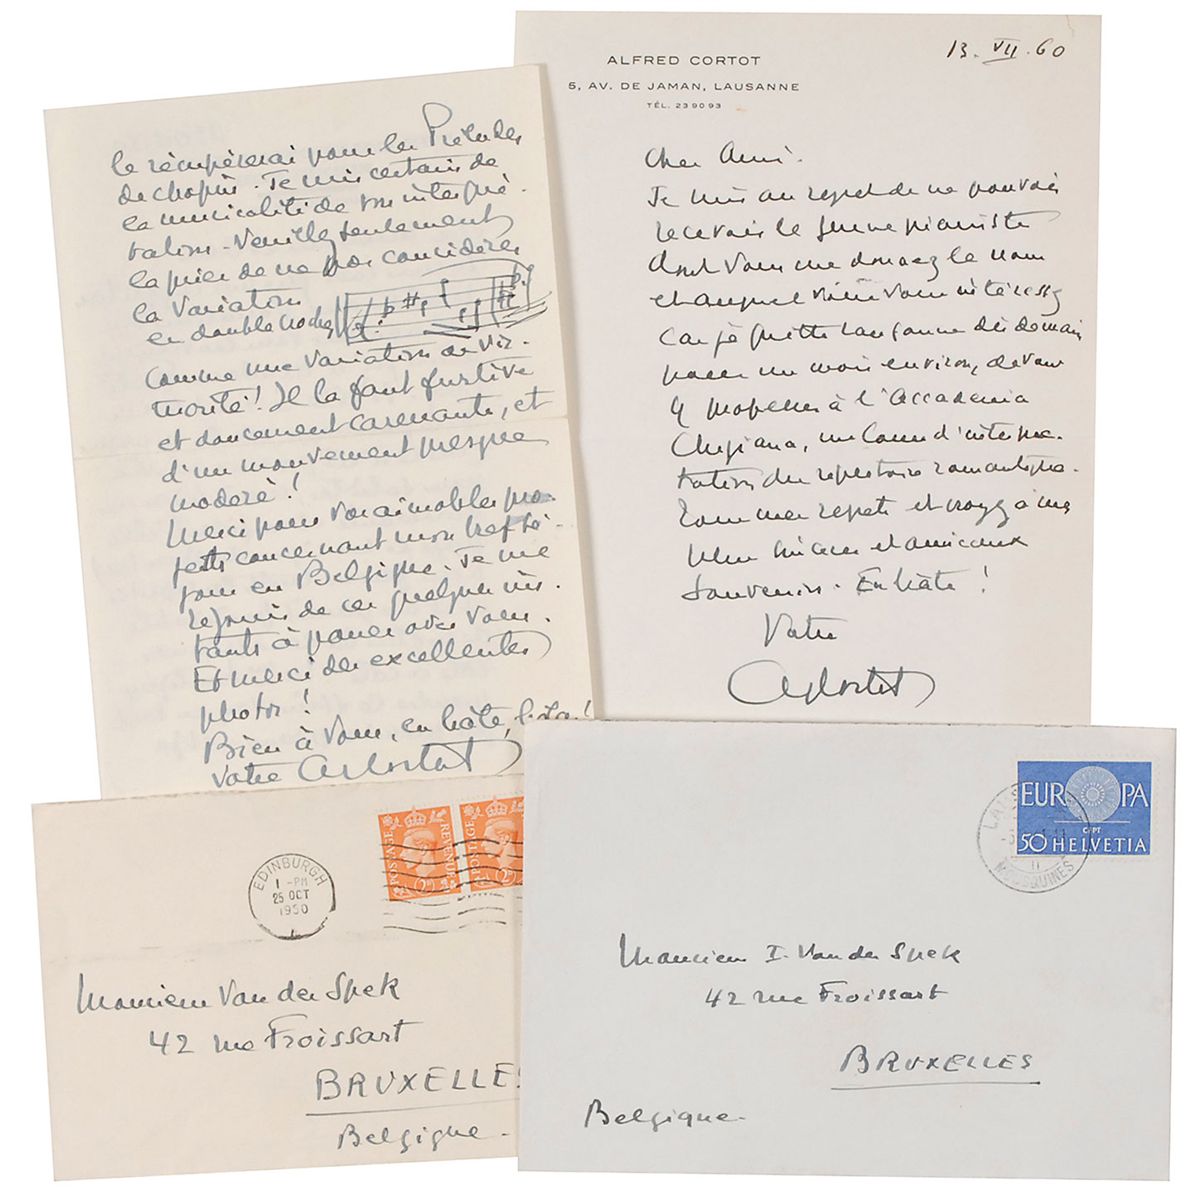 le récupérerai pour les Préludes
de Chopin. Je suis certain de
la musicalité de son interpré-
tation. Veuillez seulement
la prier de ne pas considérer
la Variation
en double croches
comme une variation de vir-
tuosité! Il la faut furtive
et doucement caressante, et
d'un mouvement presque
modéré!
Merci pour vos aimables pro-
jets concernant mon bref sé-
jour en Belgique. Je me
réjouis de ces quelques ins-
tants à passer avec vous.
Et merci des excellentes
photos!
Bien à vous, en hâte, !
votre A Cortot
ALFRED CORTOT
5, AV. DE JAMAN, LAUSANNE
TÉL. 23 90 93
13. VII. 60
Cher Ami.
Je suis au regret de ne pouvoir
recevoir le jeune pianiste
dont vous me donnez le nom
et auquel vous intéressez
car je quitte Lausanne dès demain
pour un mois environ, devant
y professer à l'Accademia
Chigiana, un Cours d'interpré-
tation du répertoire romantique.
Tous mes regrets et croyez à mes
plus sincères et amicaux
souvenirs. En hâte!
Votre
A Cortot
EDINBURGH
1 - PM
25 OCT
1950
POSTAGE
REVENUE
POSTAGE
REVENUE
Monsieur Van der Spek
42 rue Froissart
BRUXELLES
Belgique.
EUROPA
CEPT
50 HELVETIA
MOUSQUINES
Monsieur I. Van der Spek
42 rue Froissart
BRUXELLES
Belgique.